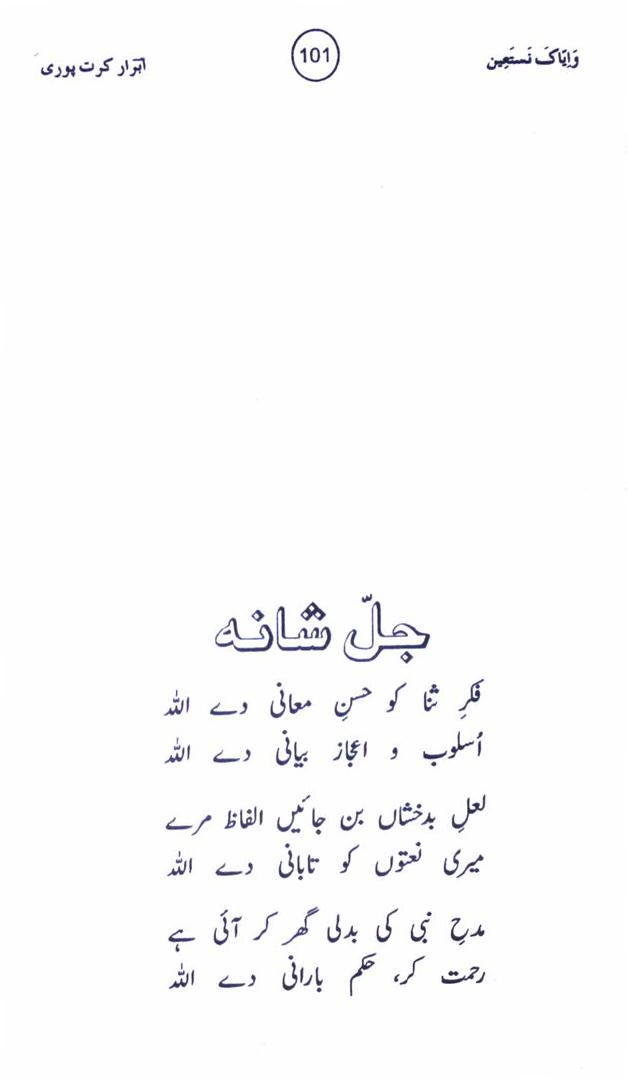 وَاِیّاکَ نَستَعِین
101
ابرار کرت پوری
جلّ شانہ
فکرِ ثنا کو حسنِ معانی دے اللہ
اُسلوب و اعجاز بیانی دے اللہ
لعلِ بدخشاں بن جائیں الفاظ مرے
میری نعتوں کو تابانی دے اللہ
مدحِ نبی کی بدلی گھر کر آئی ہے
رحمت کر، حکم بارانی دے اللہ